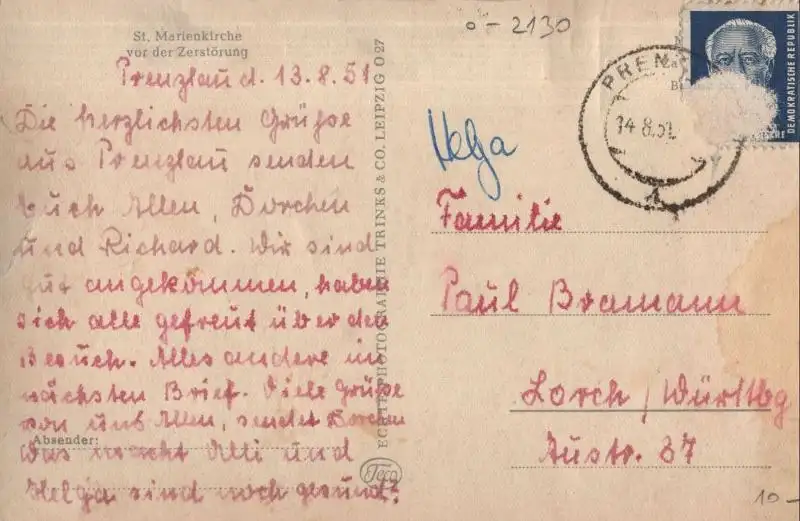 St. Marienkirche
vor der Zerstörung
Prenzlau d. 13.8.51
Die herzlichsten Grüße
aus Prenzlau senden
Euch Allen, Dorchen
und Richard. Wir sind
gut angekommen, haben
sich alle gefreut über den
Besuch. Alles andere im
nächsten Brief. Viele Grüße
von uns Allen, sendet Dorchen
Absender:
Was macht Alli und
Helga sind noch gesund?
ECHTE PHOTOGRAPHIE TRINKS & CO. LEIPZIG O 27
Teco
o - 2130
PREN
14.8.51
1
DEMOKRATISCHE REPUBLIK
Helga
Familie
Paul Bramann
Lorch / Württbg
Austr. 37
10-